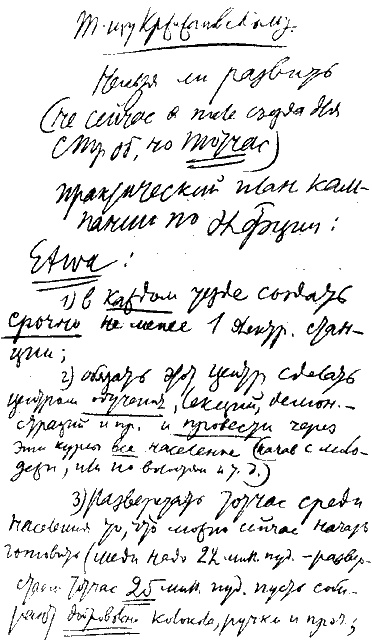 Т-щу Кржижановскому.
Нельзя ли развить
(не сейчас а после съезда для
СТО, но тотчас)
практический план кам-
пании по эл-фикции:
Etwa:
1) в каждом уезде создать
срочно не менее 1 электр. стан-
ции;
2) обязать этот центр сделать
центром обучения, лекций, демон-
страций и пр. и провести через
эти курсы все население (начав с моло-
дежи, или по волостям и т. д.)
3) Разверстать тотчас среди
населения то, что можно сейчас начать
готовить (меди надо мил. пуд. - развер-
стаем тотчас 25 мил. пуд. пусть соби-
рают добровольно колокола, ручки и проч.;